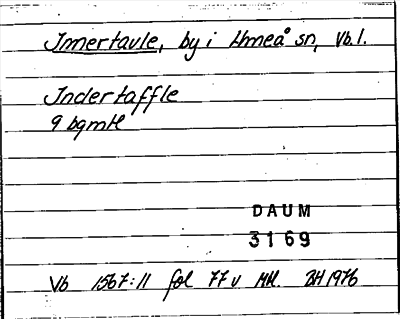 Imertavle, by i Umeå sn, Vb. l.
Indertaffle
9 bgmtl
DAUM
3169
Vb 1567:11 fol 77 v Mtl. BH 1976